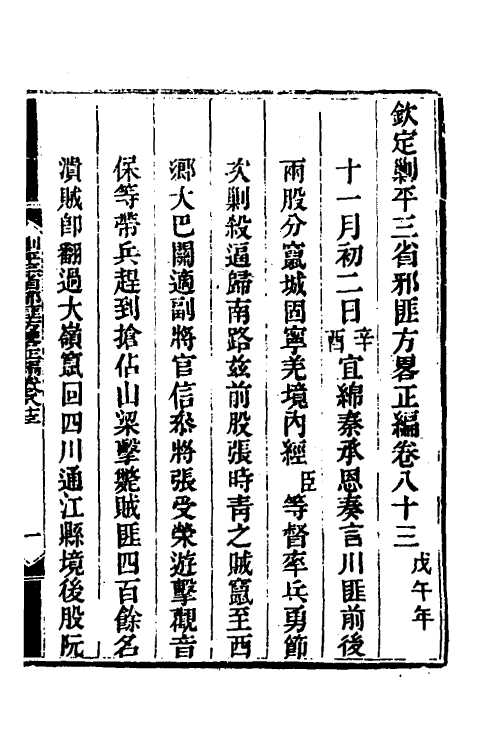 欽定剿平三省邪匪方畧正編卷八十三 戊午年
十一月初二日辛酉宜綿秦承恩奏言川匪前後
兩股分竄城固寧羌境內經臣等督率兵勇節
次剿殺逼歸南路兹前股張時青之賊竄至西
鄉大巴關適副將官信叅將張受榮遊擊觀音
保等帶兵趕到搶佔山梁擊斃賊匪四百餘名
潰賊卽翻過大嶺竄回四川通江縣境後股阮
剿平三省邪匪方畧正編卷八十三
一